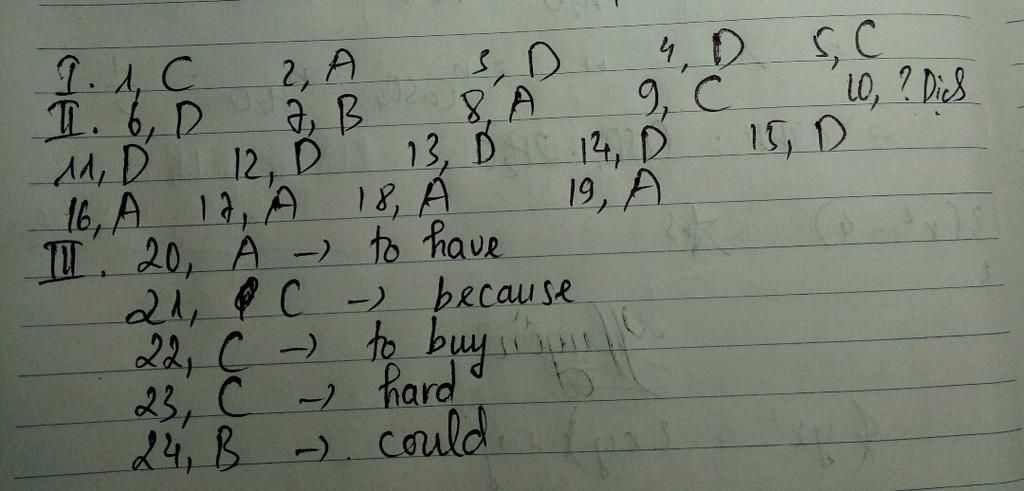 I. 1, C 2, A 3, D 4, D 5, C
II. 6, D 7, B 8, A 9, C 10, ?
11, D 12, D 13, D 14, D 15, D
16, A 17, A 18, A 19, A
III. 20, A → to have
21, C → because
22, C → to buy
23, C → hard
24, B → could